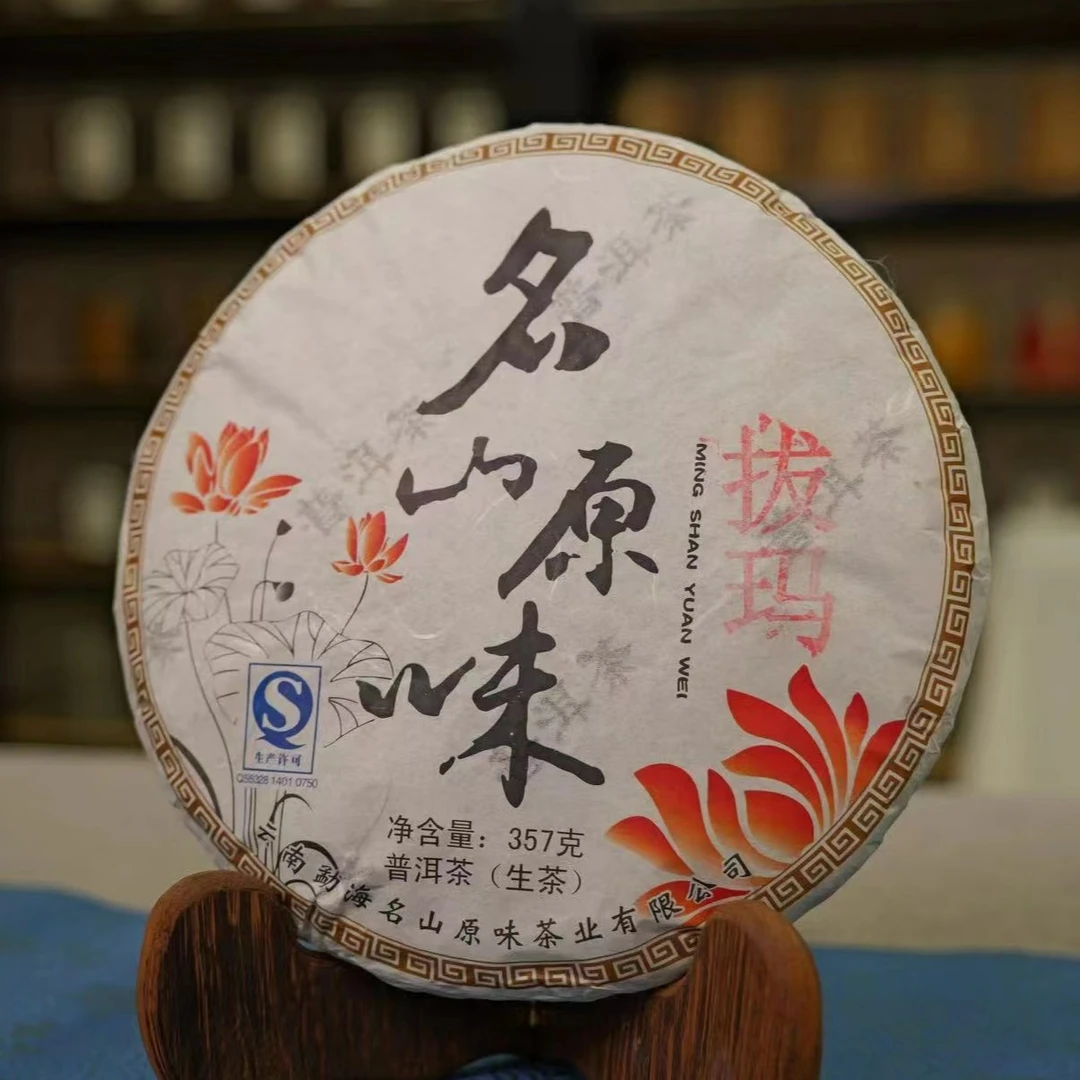 名山原味
MING SHAN YUAN WEI
拔玛
生产许可
QS5328 1401 0750
净含量：357克
普洱茶（生茶）
云南勐海名山原味茶业有限公司
普洱茶
普洱茶